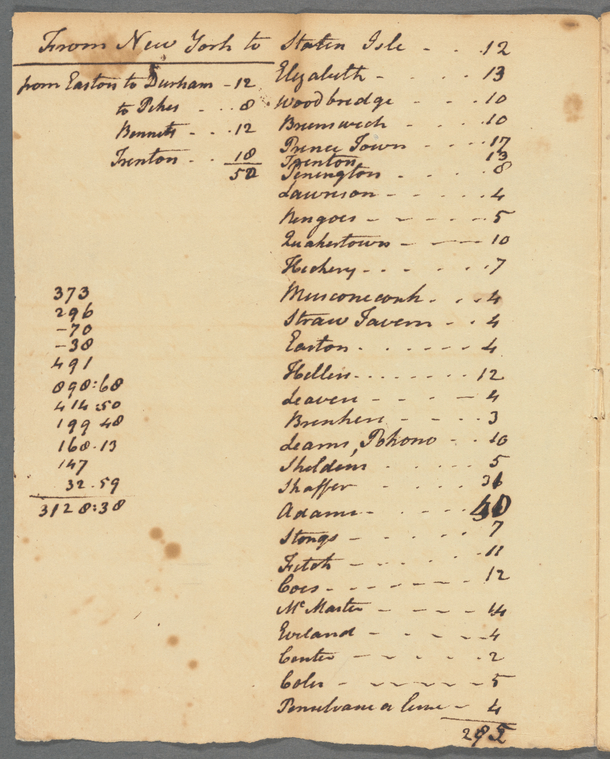 From New York to Staten Isle - - - 12
from Easton to Durham - 12
to Pikes - - 8
Bennets - - 12
Trenton - - 18
52
Elizabeth - - - - 13
Woodbridge - - - 10
Brunswich - - - 10
Prince Town - - - 17
Trenton - - - - 13
Penington - - - - 8
Lawreson - - - - 4
Ringoes - - - - 5
Quakertown - - - 10
Hickery - - - - 7
Musconeconk - - - 4
Straw Tavern - - - 4
Easton - - - - 4
Hellers - - - - 12
Leaven - - - - 4
3
Learns, Pohono - - 10
Sheldens - - - - 5
Shaffer - - - -
Adams - - - - 40
Stongs - - - - 7
Fitch - - - - 11
Coes - - - - 12
McMaster - - - - 14
Eveland - - - - 4
Center - - - - 2
Coles - - - - 5
Pensilvane a line - 4
295
373
296
-70
-38
491
898:68
414:50
199 48
168.13
147
32.59
3128:38